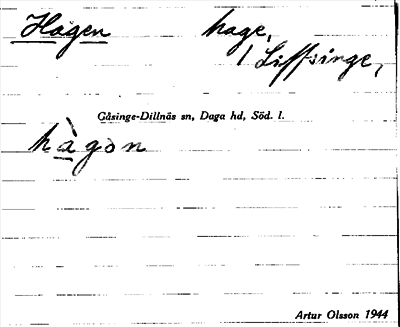 Hagen hage,
i Liffsinge,
Gåsinge-Dillnäs sn, Daga hd, Söd. l.
hàgon
Artur Olsson 1944